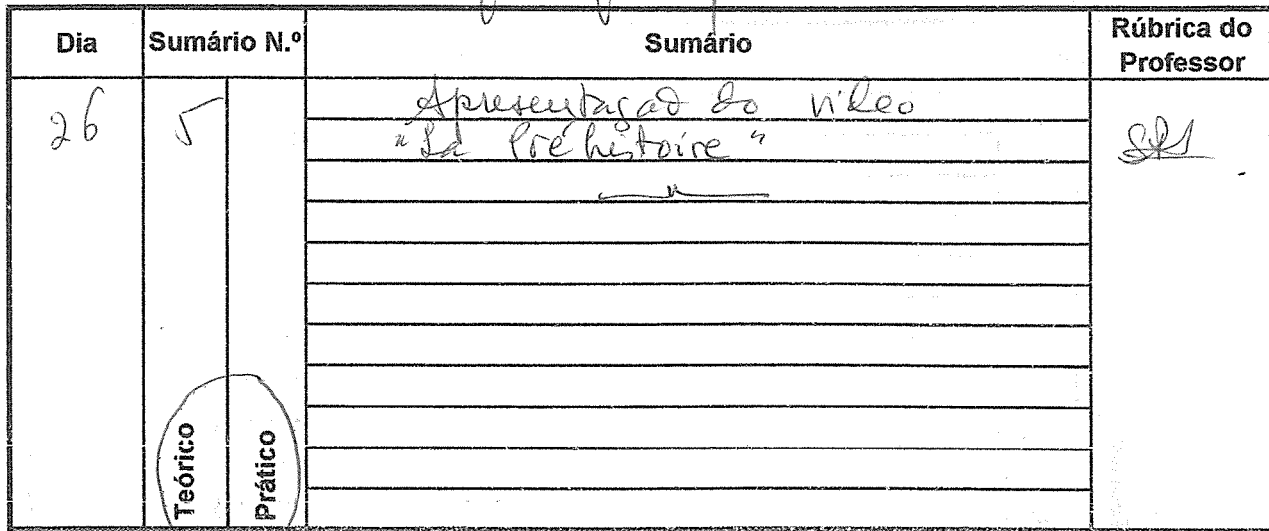 Dia Sumário N.º Sumário Rúbrica do Professor
26 5 Apresentação do vídeo
"La Préhistoire"
Teórico Prático